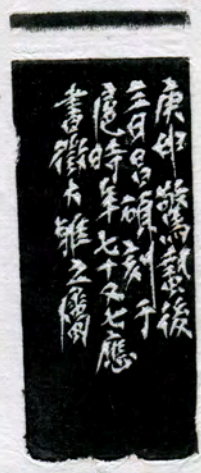 庚申驚蟄後
三日昌碩刻于
扈時年七十又七應
書徵大雅之屬